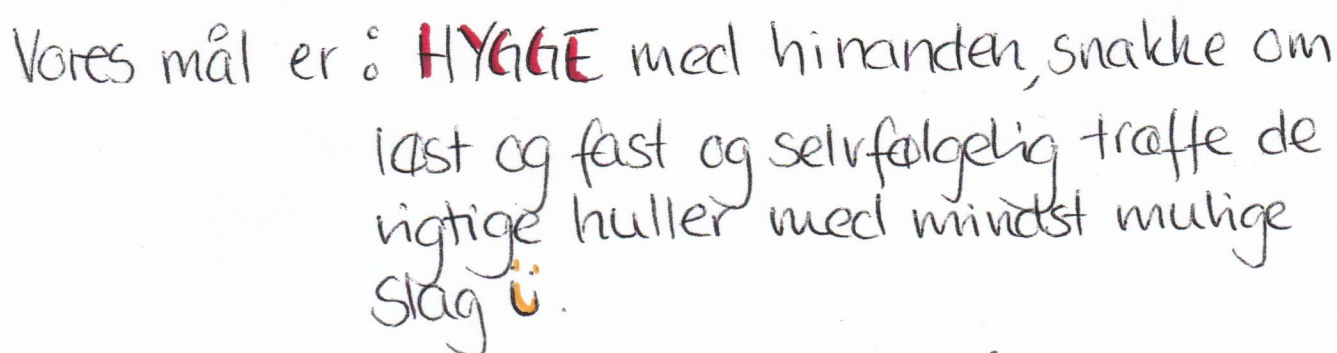 Vores mål er: HYGGE med hinanden, snakke om
løst og fast og selvfølgelig træffe de
rigtige huller med mindst mulige
slag ü.